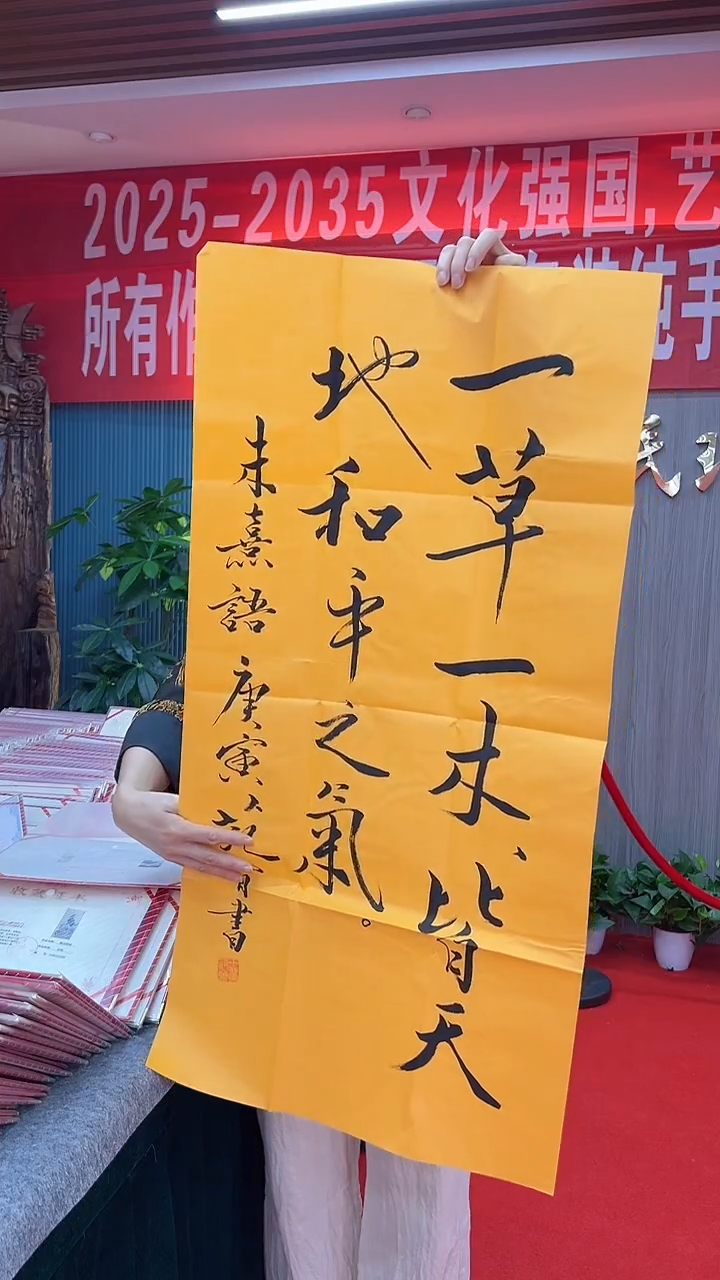 2025-2035文化强国,艺
所有作
纯手
一草一木、皆天
地和平之氣。
朱熹語 庚寅 書